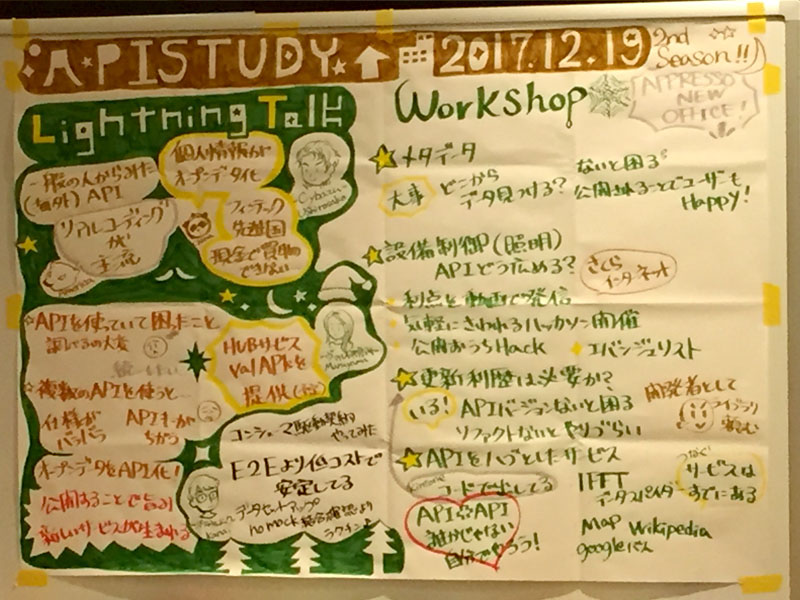 APISTUDY
2017.12.19
2nd Season!!
APPRESSO
NEW
OFFICE!
Lightning Talk
一般の人からみた
API
個人情報が
オープンデータ化
リアルコーディング
が
主流
フィンテック
先進国
現金で買物
できない
APIを使っていて困ったこと
調べるの大変
複数のAPIを使うと…
仕様が
バラバラ
APIキーが
ちがう
HUBサービス
Val APIを
提供
オープンデータをAPI化!
公開することで
新しいサービスが生まれる
コンシューマ駆動契約
やってみた
E2Eより低コストで
安定してる
データセットアップ
no mock
Workshop
メタデータ
大事
どこから
データ見つける?
ないと困る
公開されることでユーザーも
Happy!
設備制御(照明)
APIどう広める?
さくら
インターネット
利点を動画で発信
気軽にさわれるハッカソン開催
公開おうちHack
エバンジェリスト
更新利歴は必要か?
いる!
APIバージョンないと困る
リファクトないとやりづらい
開発者として
ライブラリ
APIをハブとしたサービス
IFTT
データスパイダー
つなぐ
サービスは
すでにある
Map Wikipedia
googleさん
API
API
誰かじゃない
自分でやろう!